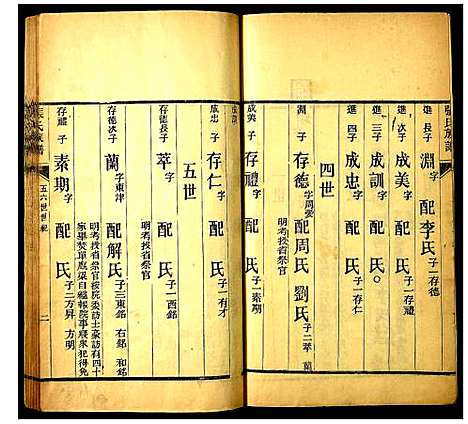 張氏族譜
進 長子 淵 字 配 李氏 子一存德
進 二子 成美 字 配 氏 子一存禮
進 三子 成訓 字 配 氏 ○
進 四子 成忠 字 配 氏 子一存仁
四世
淵 子 存德 字周雲 配 周氏 劉氏 子二萃 蘭
明考授省祭官
成美 子 存禮 字 配 氏 子一素期
成訓
成忠 子 存仁 字 配 氏 子一有才
五世
存德長子 萃 字 配 氏 子一西銘
明考授省祭官
存德次子 蘭 字東津 配 解氏 子三東銘 右銘 和銘
明考授省祭官
存禮 子 素期 字 配 氏 子二方昇 方明
張氏族譜
五六世世紀
二